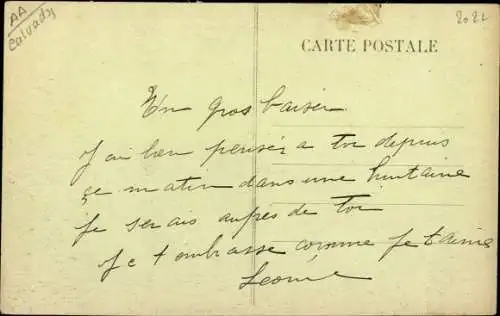 AA
Calvados
2021
CARTE POSTALE
Un gros baiser
J'ai bien pensér a toi depuis
ce matin dans une huitaine
je serais aupres de toi
je t embrasse comme je t'aime
Leonie